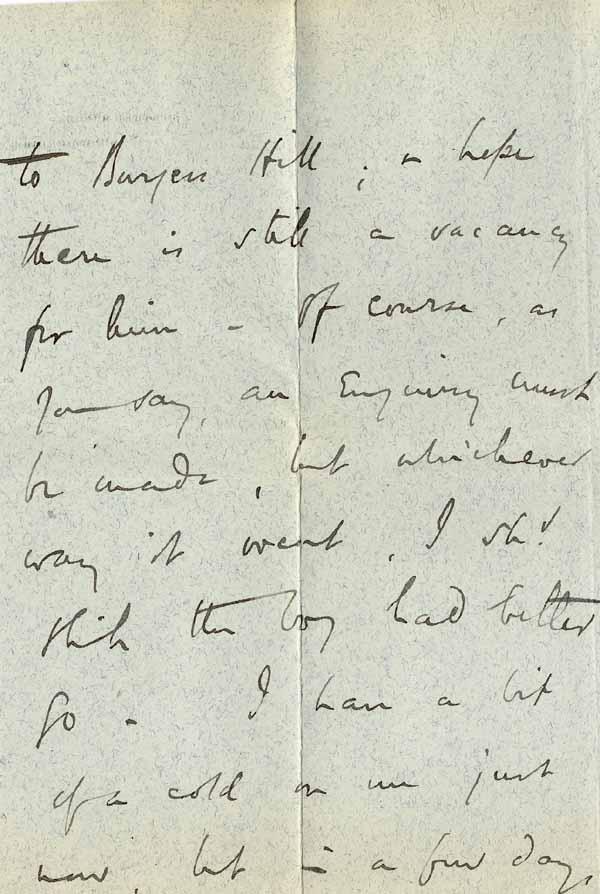 to Burgess Hill; & hope
there is still a vacancy
for him - Of course, as
you say, an Enquiry must
be made, but whichever
way it went, I shd
think the boy had better
go - I have a bit
of a cold on me just
now, but in a few days,